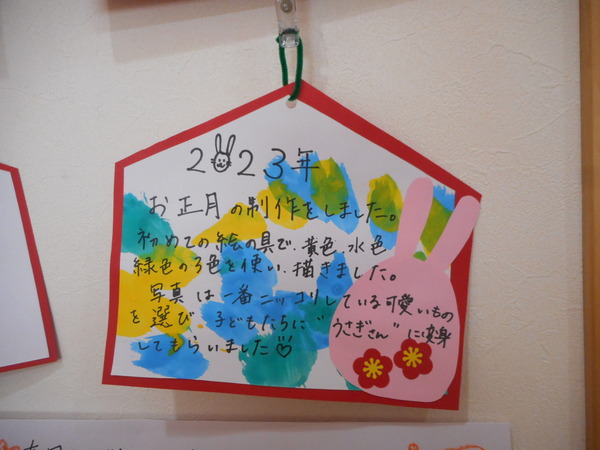 2023年
お正月の制作をしました。
初めての絵の具で、黄色、水色、
緑色の3色を使い、描きました。
写真は一番ニッコリしている可愛いもの
を選び 子どもたちに"うさぎさん"に変身
してもらいました♡